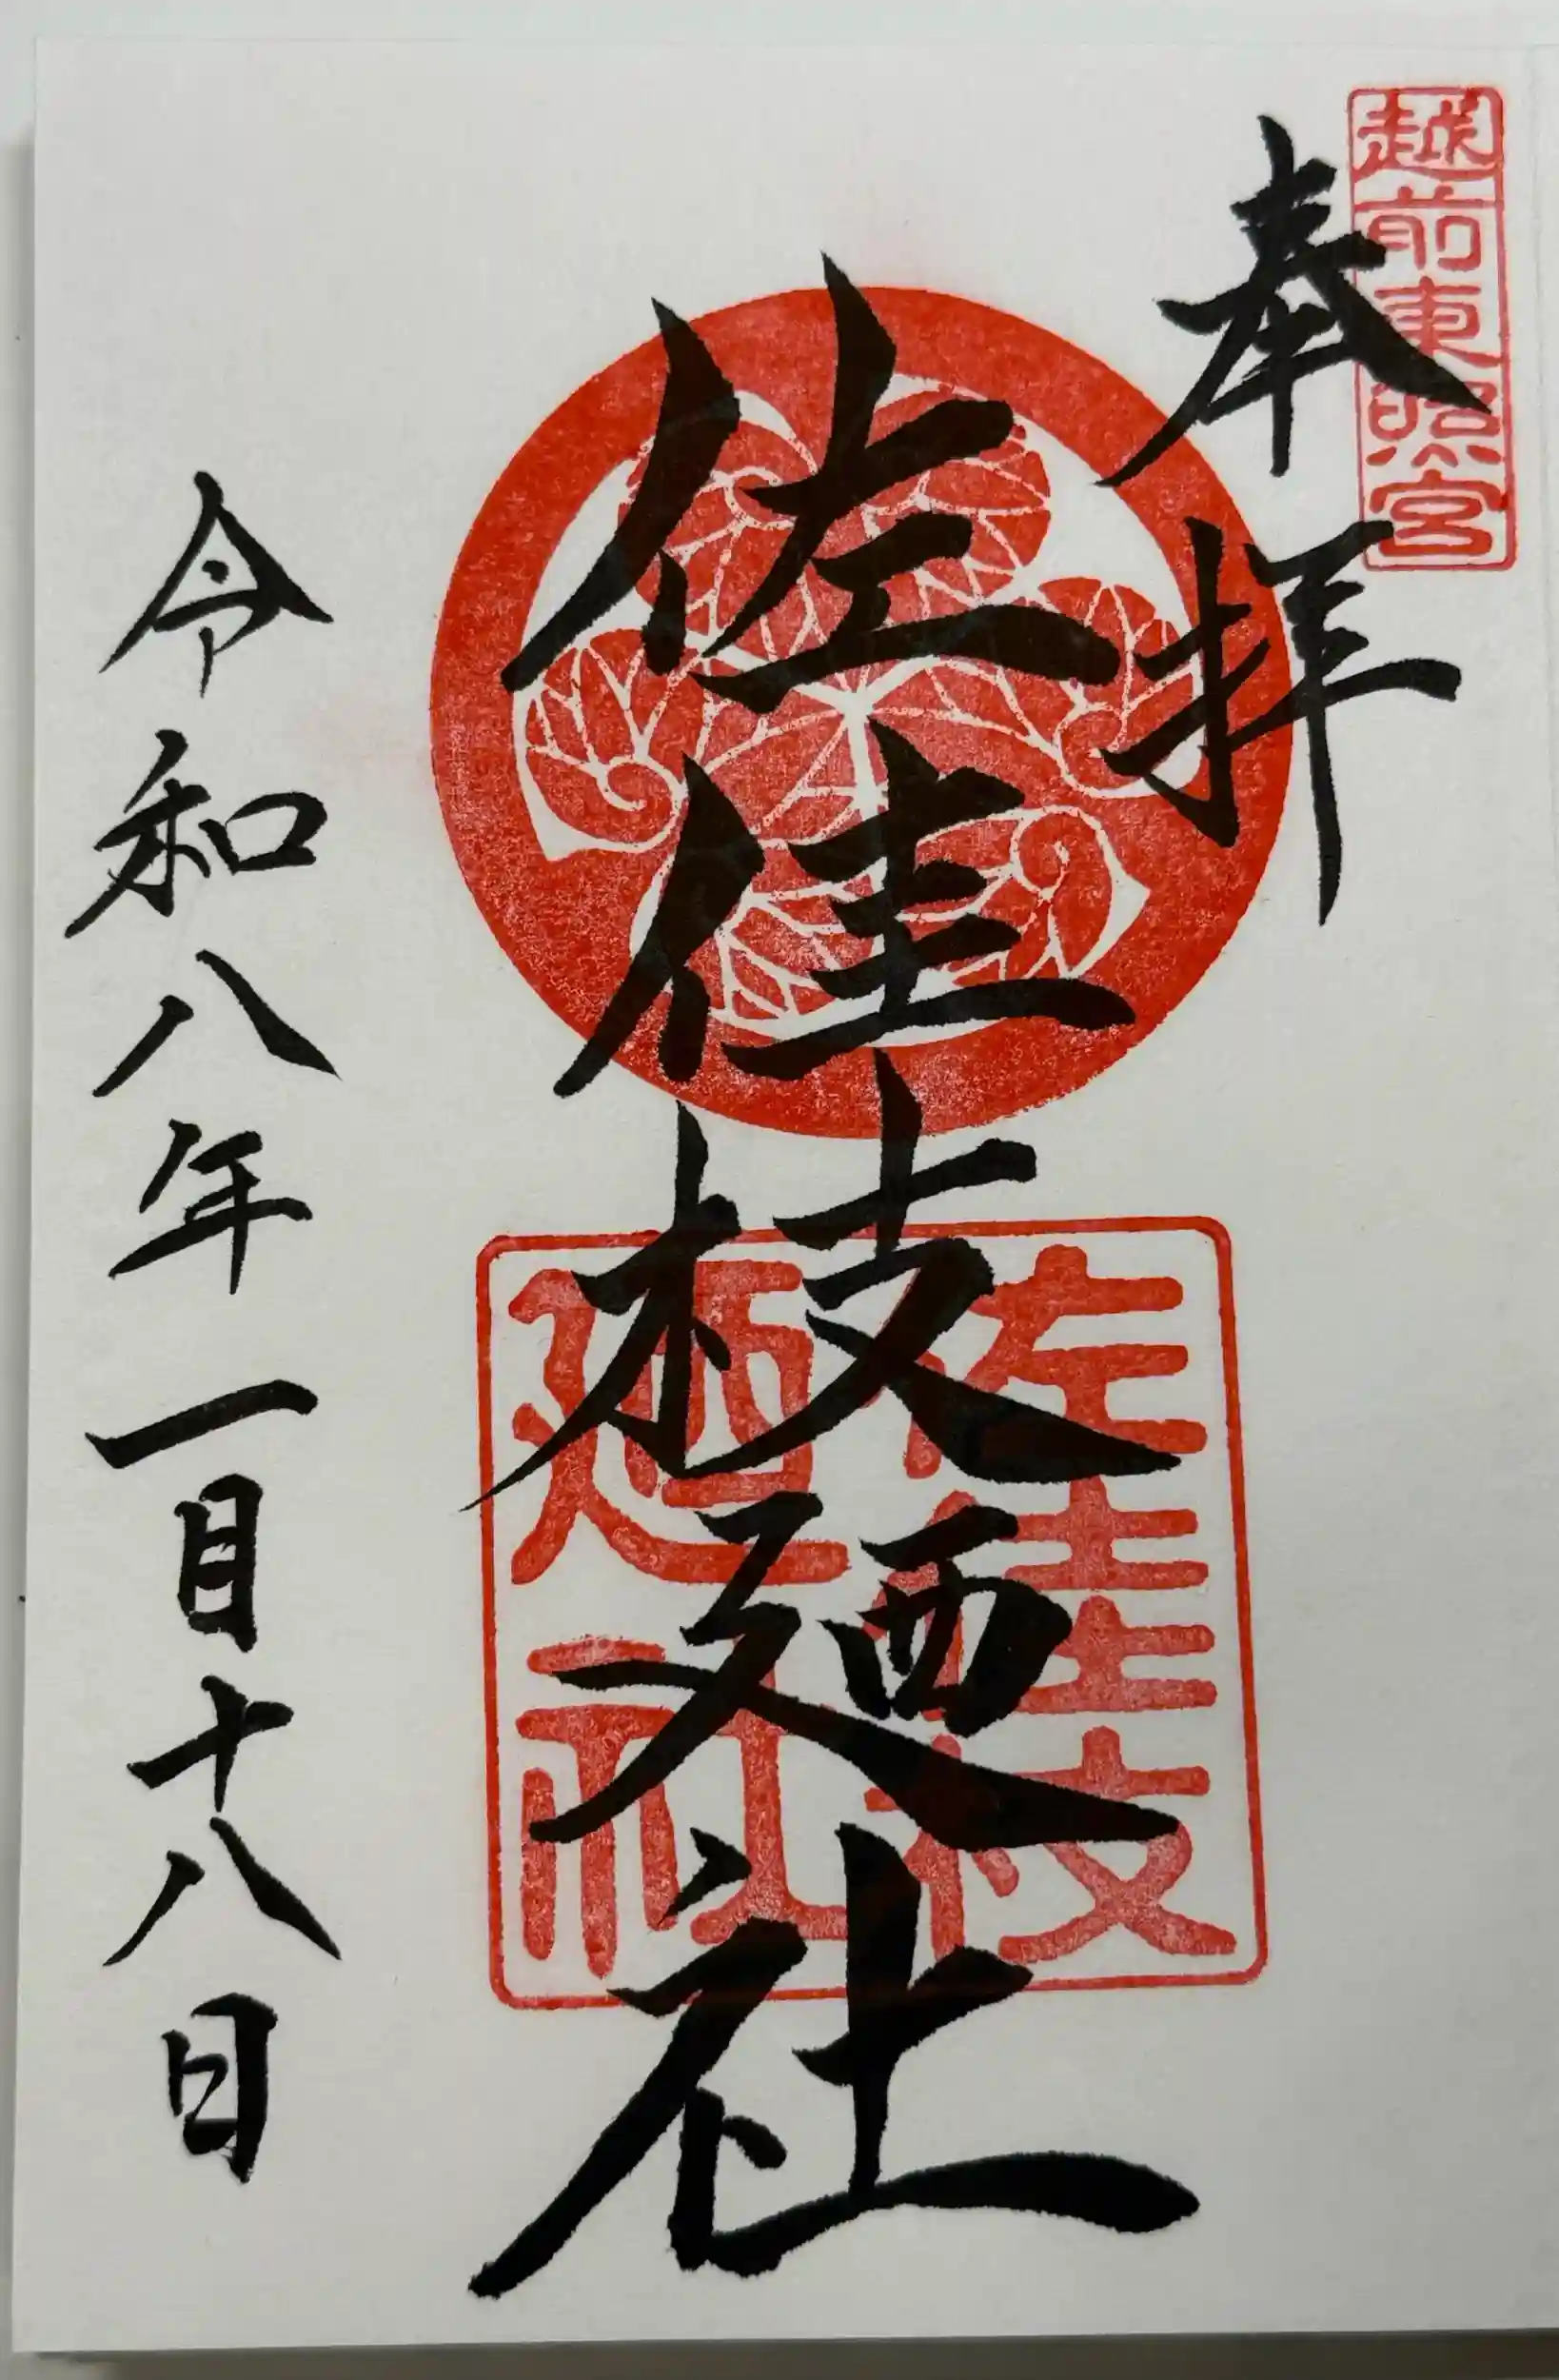 越前東照宮
奉拝
佐佳枝廼社
佐佳枝
廼社
令和八年一月十八日